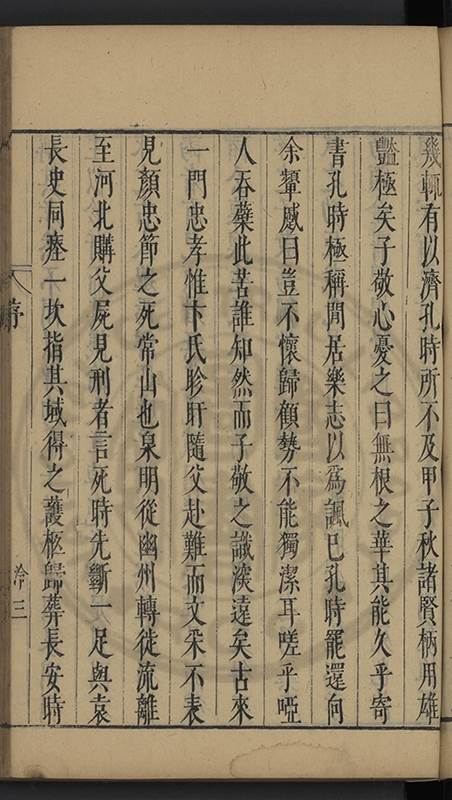 幾輒有以濟孔時所不及甲子秋諸賢柄用雄
豔極矣子敬心憂之曰無根之華其能久乎寄
書孔時極稱閒居樂志以爲諷已孔時罷還向
余顰蹙曰豈不懷歸顧勢不能獨潔耳嗟乎啞
人吞蘗此苦誰知然而子敬之識深遠矣古來
一門忠孝惟卞氏眕盱隨父赴難而文采不表
見顏忠節之死常山也泉明從幽州轉徙流離
至河北購父屍見刑者言死時先斷一足與袁
長史同瘞一坎指其域得之護柩歸葬長安時
序
三